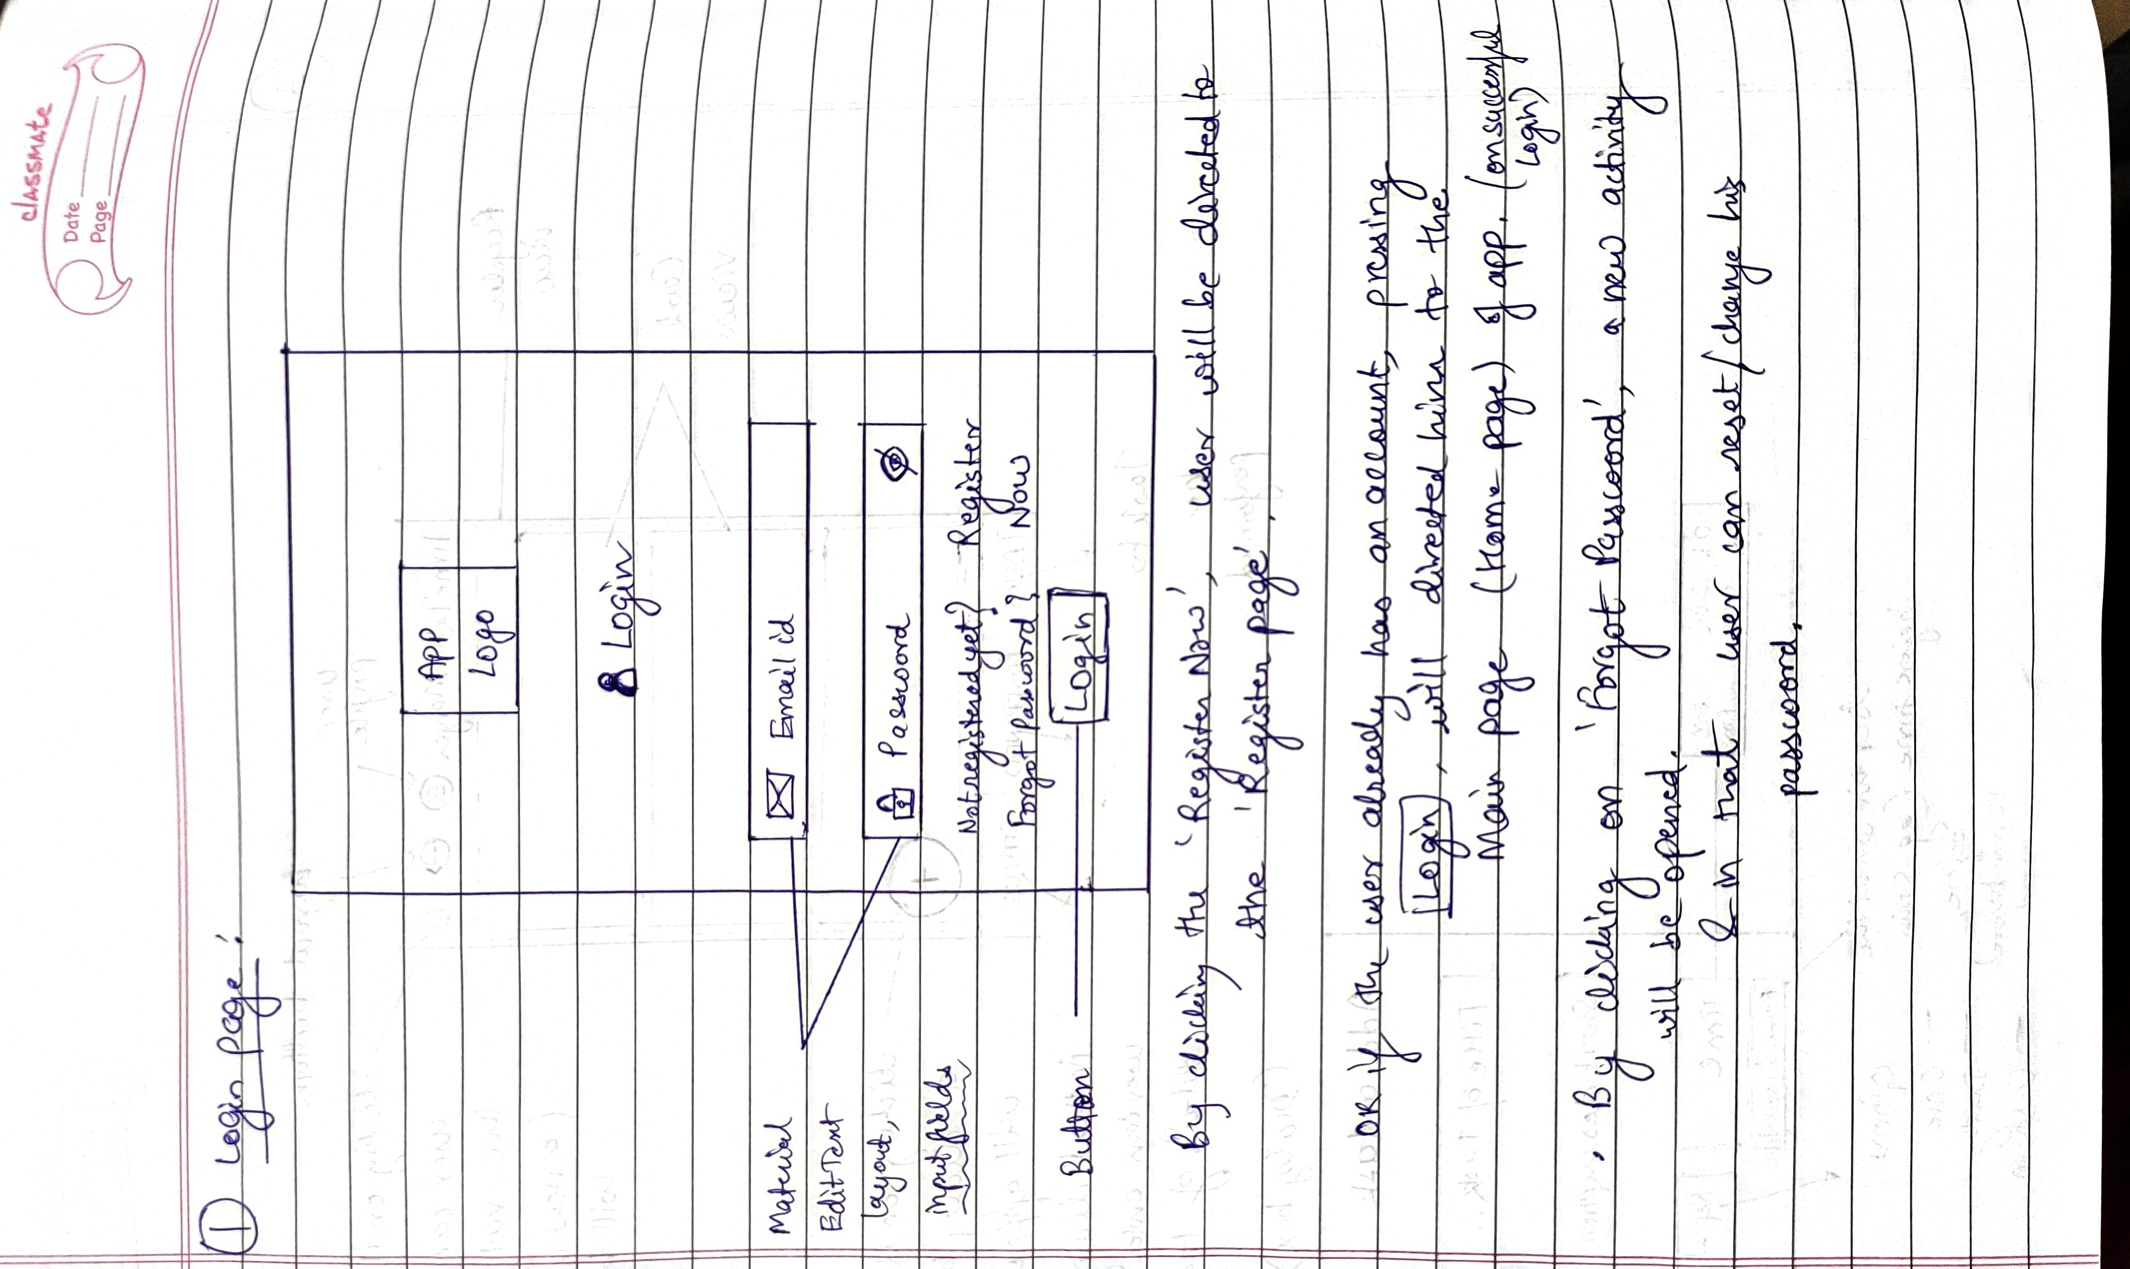 classmate
Date
Page
① Login page:
APP
Logo
Login
Email id
Password
Not registered yet? Register
Now
Forgot Password?
Login
Material
EditText
layout,
input fields
Button
By clicking the 'Register Now', user will be directed to
the 'Register page'.
OR if the user already has an account, pressing
Login, will directed him to the
Main page (Home page) of app. (on successful
Login)
. By clicking on 'Forgot Password', a new activity
will be opened.
& in that user can reset/change his
password.